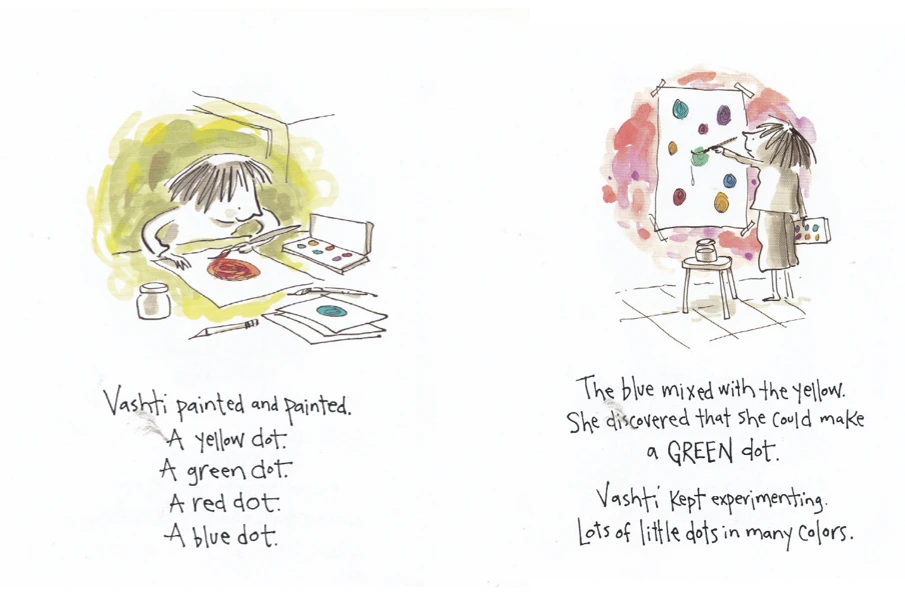 Vashti painted and painted.
A yellow dot.
A green dot.
A red dot.
A blue dot.
The blue mixed with the yellow.
She discovered that she could make
a GREEN dot.
Vashti kept experimenting.
Lots of little dots in many colors.